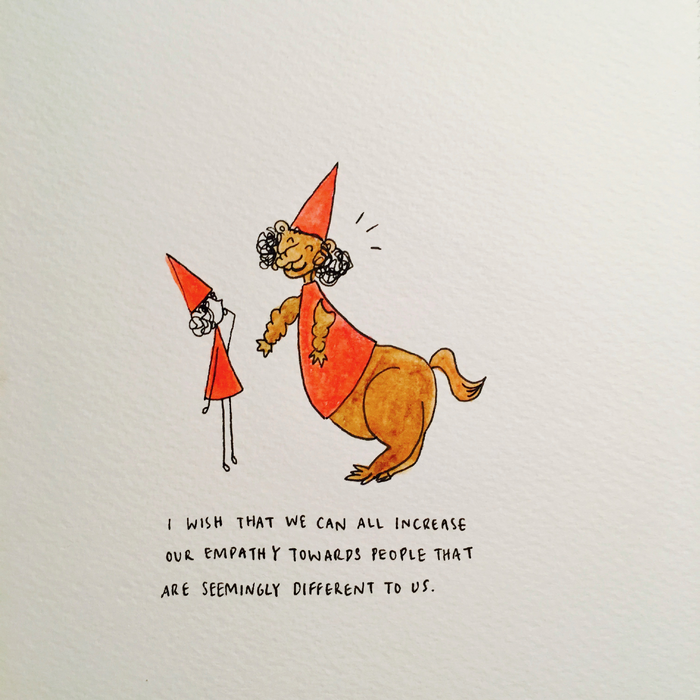 I WISH THAT WE CAN ALL INCREASE
OUR EMPATHY TOWARDS PEOPLE THAT
ARE SEEMINGLY DIFFERENT TO US.